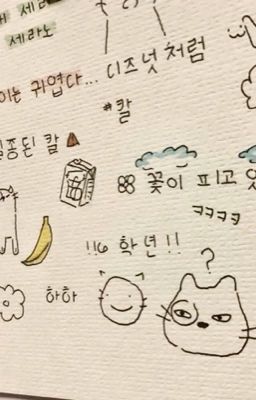 세라노
이는 귀엽다... 디즈넛 처럼
#칼
종된 칼
꽃이 피고
ㅋㅋㅋㅋ
!!6 학년!!
?
하하